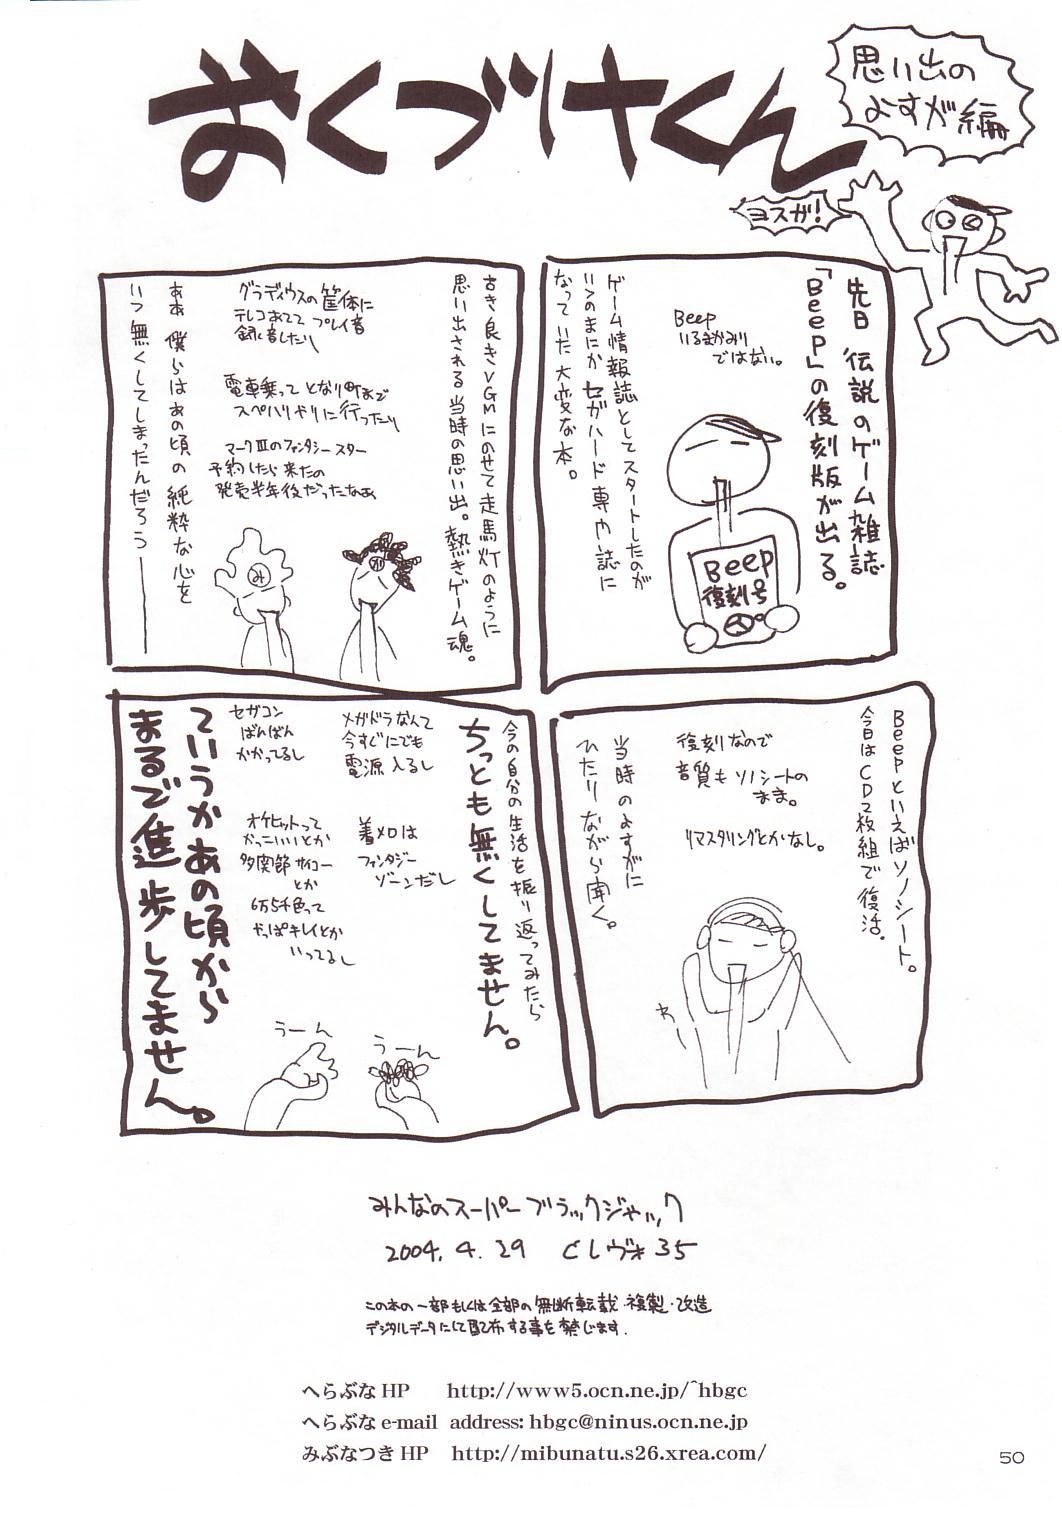 おくづけくん
思い出の
よすが編
ヨスガ!
先日 伝説のゲーム雑誌
「Beep」の復刻版が出る。
Beep
いるまかみり
ではない。
ゲーム情報誌としてスタートしたのが
いつのまにか セガハード専門誌に
なっていた大変な本。
Beep
復刻号
古き良きVGMにのせて走馬灯のように
思い出される当時の思い出。熱きゲーム魂。
グラディウスの筐体に
テレコあてて プレイ音
録音したり
電車乗って となり町まで
スペハリドリに行ったり
マークⅢのファンタシースター
予約したら来たの
発売半年後だったなぁ
ああ 僕らはあの頃の純粋な心を
いつ無くしてしまったんだろう―――
み
み
Beepといえばソノシート。
今日はCD2枚組で復活。
復刻なので
音質もソノシートの
まま。
リマスタリングとかなし。
当時のよすがに
ひたりながら聞く。
今の自分の生活を振り返ってみたら
ちっとも無くしてません。
メガドラなんて
今すぐにでも
電源入るし
着メロは
ファンタジー
ゾーンだし
セガコン
ばんばん
かかってるし
オケヒットって
かっこいいとか
多関節サイコー
とか
6万5千色って
やっぱキレイとか
いってるし
ていうかあの頃から
まるで進歩してません。
うーん
うーん
みんなのスーパーブラックジャック
2004.4.29 Cレヴォ35
この本の一部もしくは全部の無断転載・複製・改造
デジタルデータにして配布する事を禁じます.
へらぶなHP http://www5.ocn.ne.jp/^hbgc
へらぶなe-mail address: hbgc@ninus.ocn.ne.jp
みぶなつきHP http://mibunatu.s26.xrea.com/
50